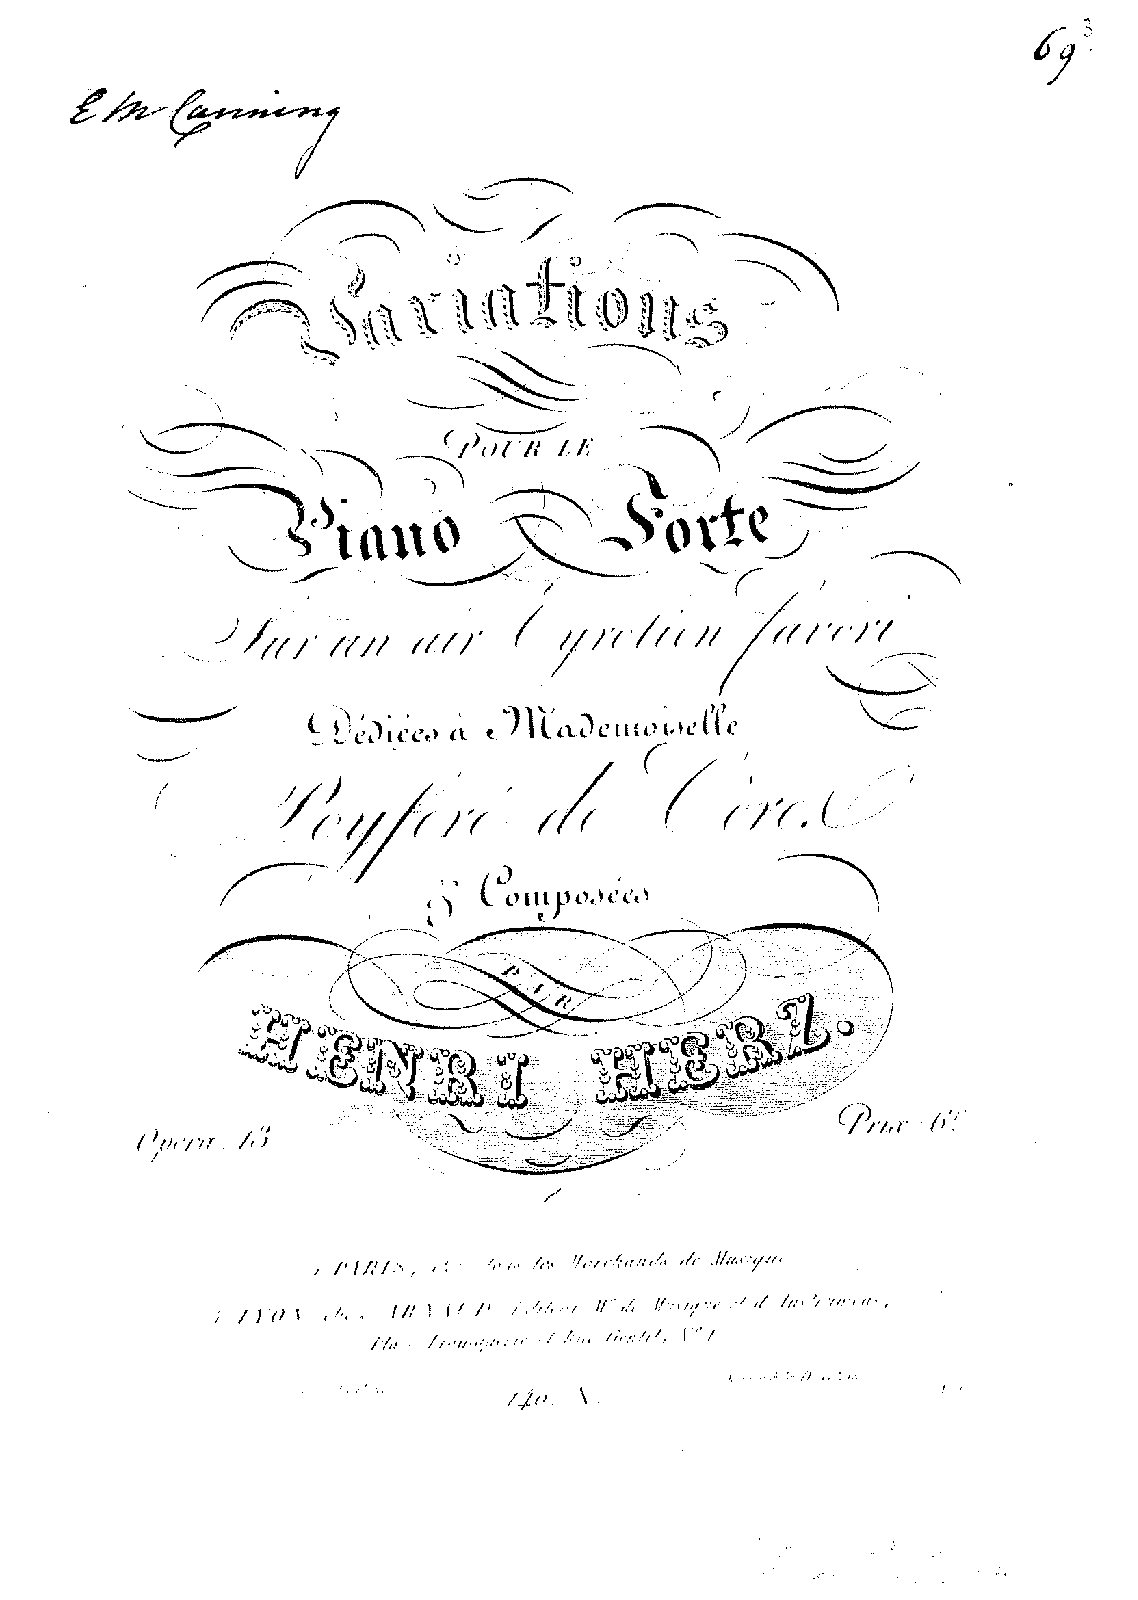 69
E M Canning
Variations
POUR LE
Piano Forte
Sur un air Tyrolien favori
Dédiées à Mademoiselle
Poyferé de Cère.
& Composées
PAR
HENRI HERZ.
Opera. 13
Prix 6f
à PARIS, chez tous les Marchands de Musique
à LYON chez ARNAUD Editeur Md de Musique et d'Instrumens,
Place et Rue Gentil, No 1
140. A.